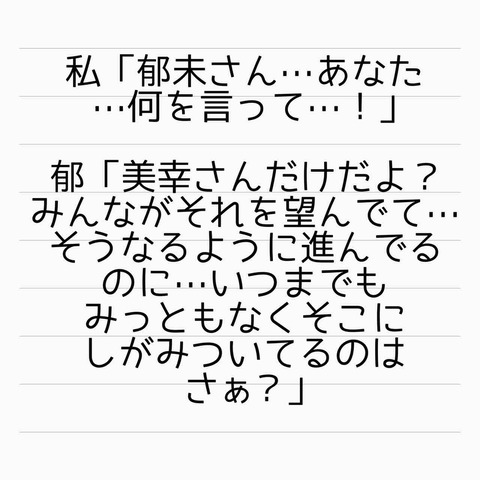 私「郁未さん…あなた
…何を言って…！」
郁「美幸さんだけだよ？
みんながそれを望んでて…
そうなるように進んでる
のに…いつまでも
みっともなくそこに
しがみついてるのは
さぁ？」